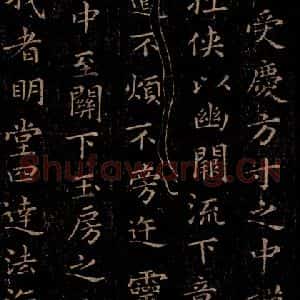 受慶方寸之中謹
壯俠以幽闕流下竟
道不煩不旁迕靈
中至關下玉房之
我者明堂四達法海
Shufawang.CN